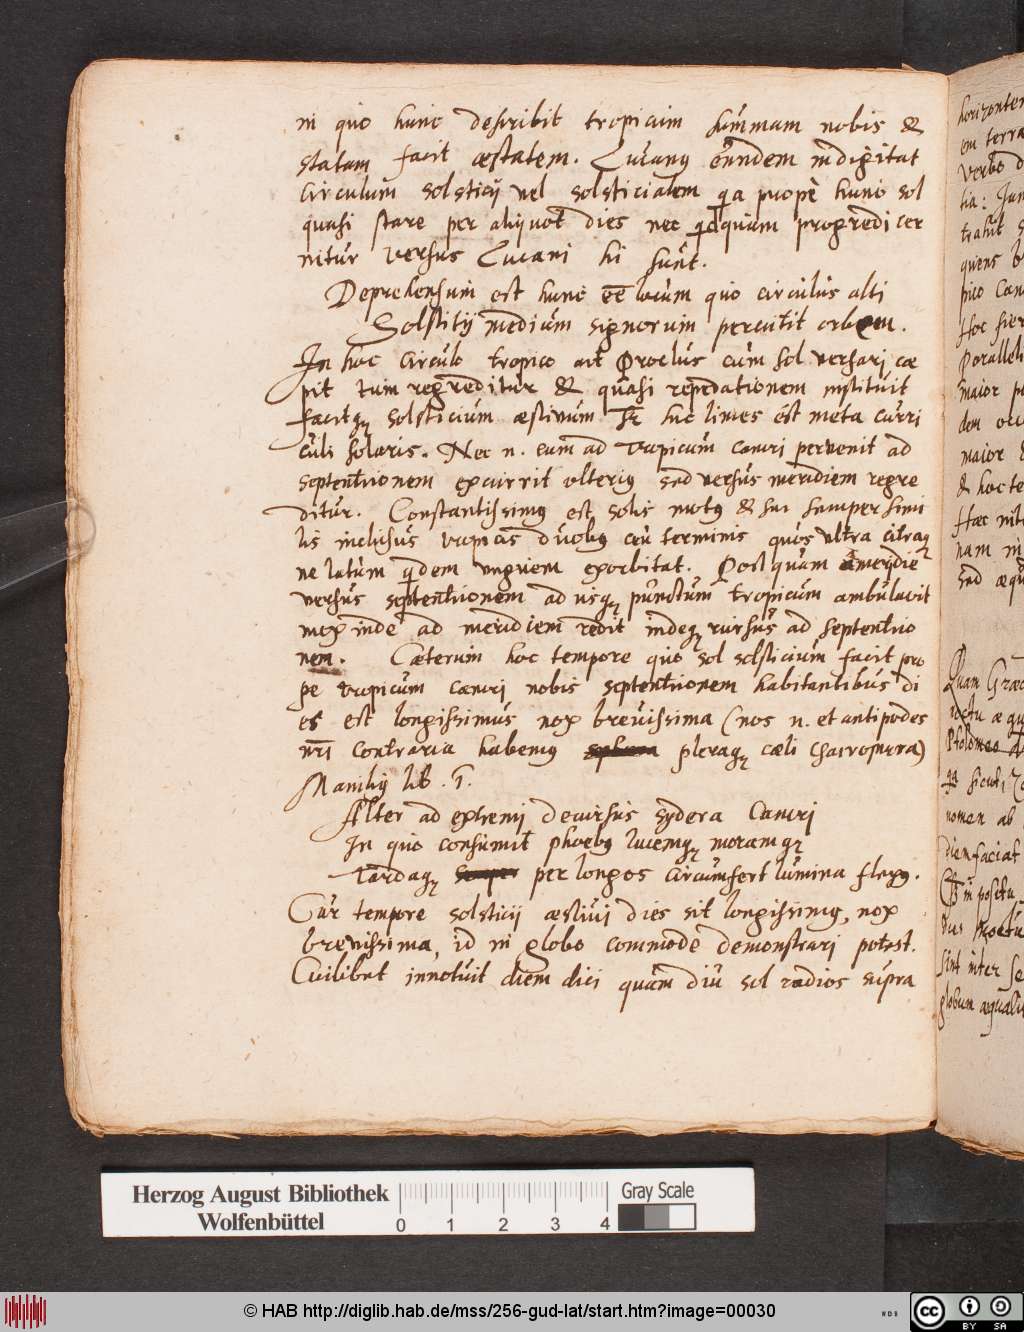 in quo hunc describit tropicum summam nobis &
statam facit æstatem. Lucanus eundem indigitat
Circulum solsticij vel solsticialem q̃a prope hunc sol
quasi stare per aliquot dies nec q̃cquam progredi cer
nitur versus Lucani hi sunt.
Deprehensum est hunc eē locum quo circulus alti
Solstitij medium signorum percutit orbem.
In hoc Circulo tropico ait Proclus cum sol versari cæ
pit tum regreditur & quasi instituit
facitq; solsticium æstivum hic limes est meta curri
culi solaris. Nec n. cum ad tropicum cancri pervenit ad
septentrionem excurrit ulterius sed versus meridiem regre
ditur. Constantissimus est solis motus & sui semper simi
lis inclusus tropicis duobus ceu terminis quos ultra citraq;
ne latum q̃dem unguem exorbitat. Postquam a meridie
versus septentrionem ad usq; punctum tropicum ambulavit
mox inde ad meridiem redit indeq; rursus ad septentrio
nem. Cæterum hoc tempore quo sol solsticium facit pro
pe tropicum cancri nobis septentrionem habitantibus di
es est longissimus nox brevissima (nos n. et antipodes
nr̃i contraria habemus pleraq; cæli)
Manilij lib. 3.
Alter ad extremi decursus sydera Cancri
In quo consumit phoebus lucemq; moramq;
Tardaq; per longos circumfert lumina flexus.
Cur tempore solsticij æstivi dies sit longissimus, nox
brevissima, id in globo commode demonstrari potest.
Cuilibet innotuit diem dici quam diu sol radios supra
horizonten
em terra
verbo d
tia: Jun
trahit
quens
pico Can
Hoc fier
Paralleli
maior p
dem occ
maior
& hoc te
Hæc nit
nam in
sed æqu
Quam Græc
æqu
Ptolomeo
q̃a sicuti
nomen ab
diem faciat
posetu
Noctu
sint inter se
globum æqualit
Herzog August Bibliothek
Wolfenbüttel
0 1 2 3 4
Gray Scale
© HAB http://diglib.hab.de/mss/256-gud-lat/start.htm?image=00030
WDB
cc
BY SA